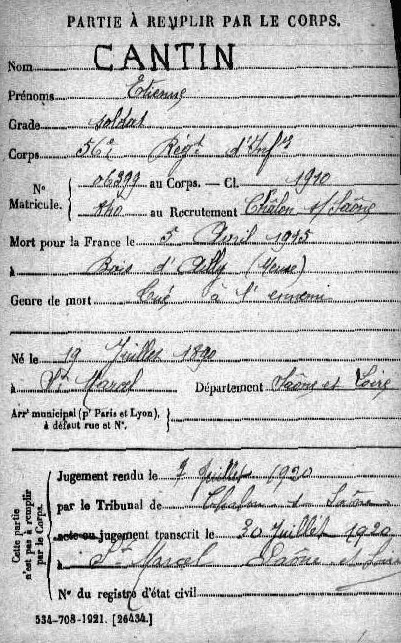 PARTIE À REMPLIR PAR LE CORPS.
Nom CANTIN
Prénoms Etienne
Grade soldat
Corps 56e Régt d'Infie
No Matricule. { 06399 au Corps. — Cl. 1910
840 au Recrutement Châlon s/ Saône
Mort pour la France le 5 Avril 1915
à Bois d'Ailly (Meuse)
Genre de mort Tué à l'ennemi
Né le 19 Juillet 1890
à St Marcel Département Saône et Loire
Arrt municipal (pr Paris et Lyon), à défaut rue et No. }
Cette partie n'est pas à remplir par le Corps.
Jugement rendu le 7 Juillet 1920
par le Tribunal de Chalon s Saône
acte ou jugement transcrit le 20 Juillet 1920
à St Marcel Saône et Loire
No du registre d'état civil
534-708-1921. [26434.]